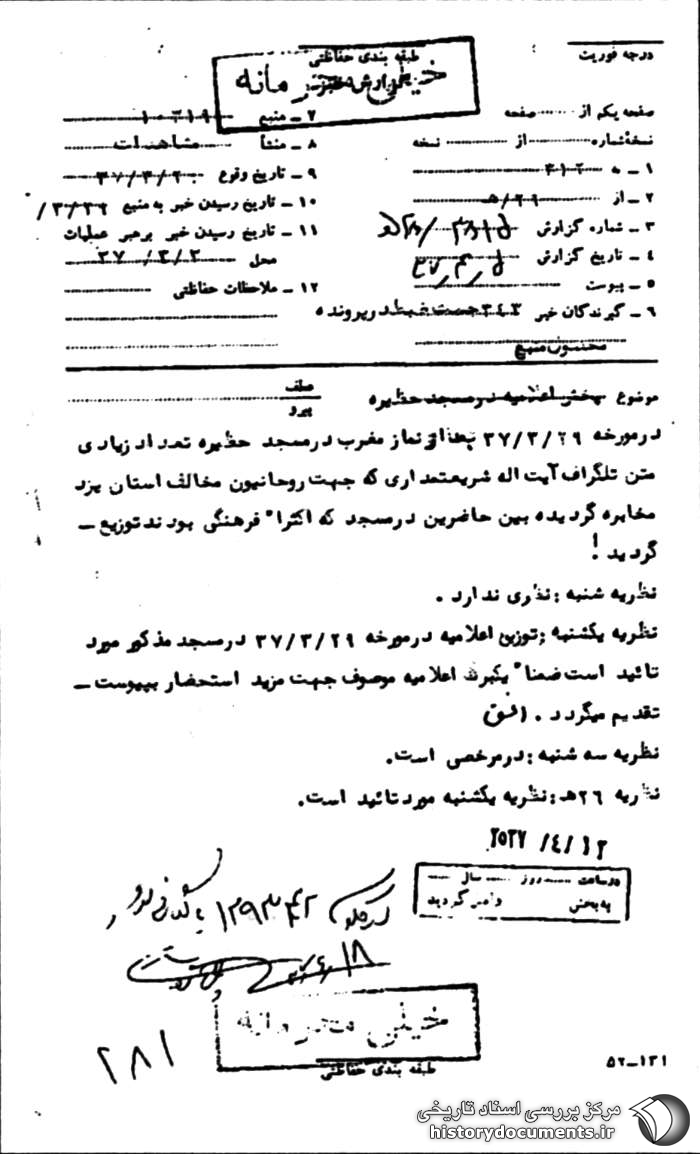 درجه فوریت
طبقه بندی حفاظتی
خیلی محرمانه
گزارش خبر
صفحه یکم از ........ صفحه
نسخهٔ شماره ........ از ........ نسخه
۱ ـ به ۳۱۲
۲ ـ از ۲۶/هـ
۳ ـ شماره گزارش
۴ ـ تاریخ گزارش
۵ ـ پیوست
۶ ـ گیرندگان خبر ۳۴۳ جهت ضبط در پرونده
محسوس منبع
۷ ـ منبع ۱۰۲۱۹
۸ ـ منشأ مشاهدات
۹ ـ تاریخ وقوع
۱۰ ـ تاریخ رسیدن خبر به منبع
۱۱ ـ تاریخ رسیدن خبر برهبر عملیات
محل
۱۲ ـ ملاحظات حفاظتی
موضوع پخش اعلامیه در مسجد حظیره
عطف
پیرو
در مورخه ۳۷/۳/۲۹ بعد از نماز مغرب در مسجد حظیره تعداد زیادی
متن تلگراف آیت اله شریعتمداری که جهت روحانیون مخالف استان یزد
مخابره گردیده بین حاضرین در مسجد که اکثراً فرهنگی بودند توزیع ـ
گردید !
نظریه شنبه : نظری ندارد .
نظریه یکشنبه : توزیع اعلامیه در مورخه ۳۷/۳/۲۹ در مسجد مذکور مورد
تائید است ضمناً یکبرگ اعلامیه موصوف جهت مزید استحضار بپیوست ـ
تقدیم میگردد . افق
نظریه سه شنبه : در مرخصی است.
نظریه ۲۶هـ : نظریه یکشنبه مورد تائید است.
۲۵۳۷/۴/۱۲
در ساعت ...... روز ...... سال ......
به بخش ...... واصل گردید
۱۲۹۳۴۲
خیلی محرمانه
طبقه بندی حفاظتی
۲۸۱
۵۲-۱۳۱
مرکز بررسی اسناد تاریخی
historydocuments.ir